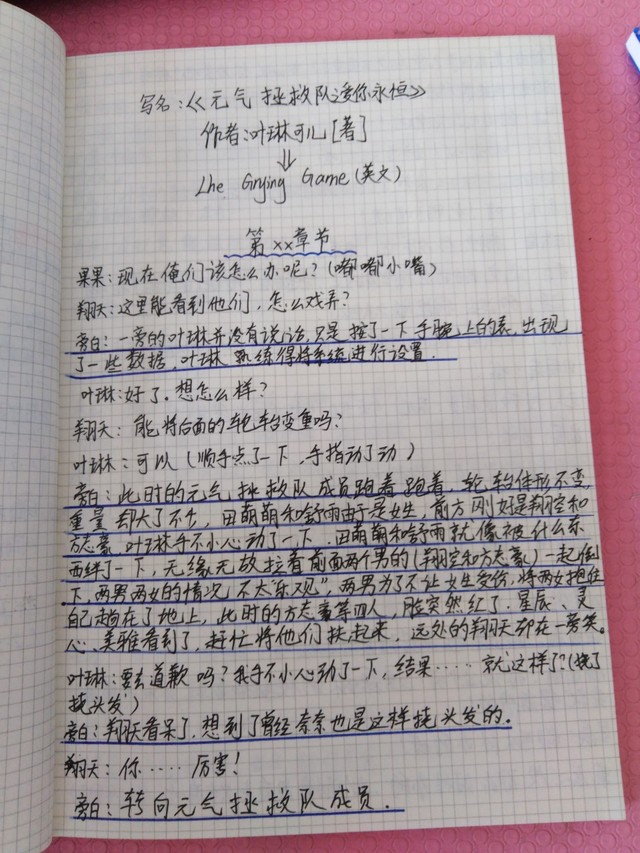 写名:《元气拯救队之爱你永恒》
作者:叶琳可儿[著]
⇓
Lhe Gnying Game(英文)
第xx章节
果果:现在俺们该怎么办呢?(嘟嘟小嘴)
翔天:这里能看到他们,怎么戏弄?
旁白:一旁的叶琳并没有说话,只是按了一下手腕上的表,出现
了一些数据,叶琳熟练得将系统进行设置.
叶琳:好了.想怎么样?
翔天:能将后面的轮胎变重吗?
叶琳:可以(顺手点了一下,手指动了动)
旁白:此时的元气拯救队成员跑着跑着,轮胎体形不变,
重量却大了不少,田萌萌和舒雨由于是女生,前方刚好是翔空和
方志豪,叶琳手不小心动了一下.田萌萌和舒雨就像被什么东
西绊了一下,无缘无故拉着前面两个男的(翔空和方志豪)一起倒
下,两男两女的情况不太"乐观",两男为了不让女生受伤,将两女抱住
自己趟在了地上,此时的方志豪等四人,脸突然红了.星辰、灵
心、美雅看到了,赶忙将他们扶起来,远处的翔天却在一旁笑。
叶琳:要去道歉吗?我手不小心动了一下,结果……就这样了?(挠了
挠头发)
旁白:翔天看呆了,想到了曾经奈奈也是这样挠头发的.
翔天:你……厉害!
旁白:转向元气拯救队成员.